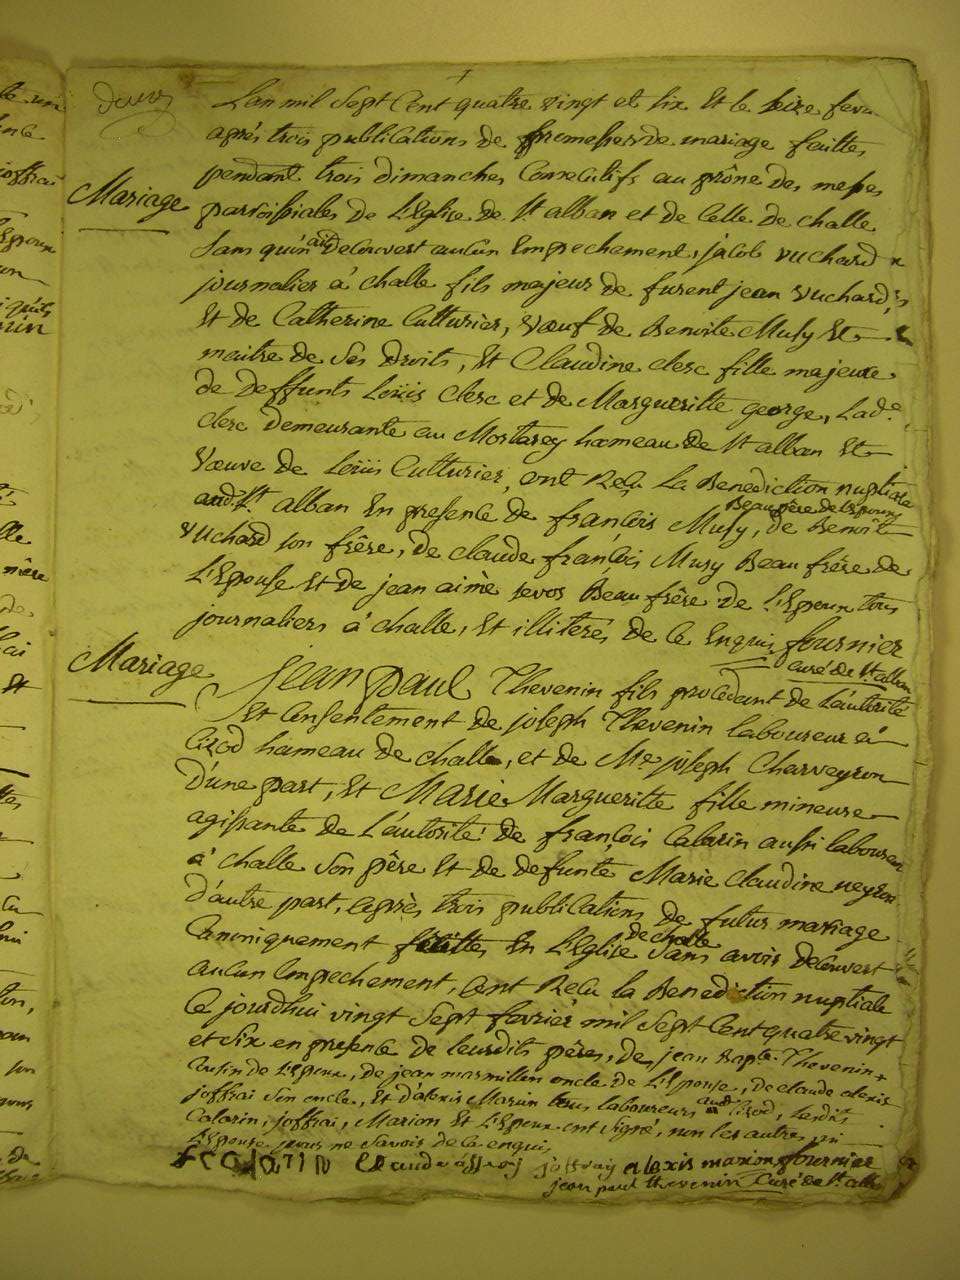 deux
L'an mil sept cent quatre vingt et six et le seize fev
après trois publications de promesses de mariage faittes
Mariage
pendant trois dimanches consecutifs au prône des messes
paroissiales de l'Eglise de St alban et de celle de challe
sans qu'on ait decouvert aucun Empechement, jacob vuchard
journalier à challe fils majeur de furent jean vuchard,
Et de Catherine Cutturier, Vœuf de Benoite Musy Et
maitre de ses droits, Et Claudine clerc fille majeure
de deffunts Loüis clerc et de Margueritte george, Lade
clerc demeurante au Mortarey hameau de St alban Et
Vœuve de Loüis Cutturier, ont Reçu La Benediction nuptiale
audt St alban En presence de françois Musy, Beau père de l'epoux, de Benoît
vuchard son frère, de claude françois Musy Beau frère de
L'Epouse Et de jean aimè Beau frère de l'Epoux tous
journaliers à challe, Et illiterés de ce Enquis fournier
curé de St alban
Mariage
Jean paul Thevenin fils procedant de L'autorité
Et Consentement de joseph Thevenin laboureur à
Cizod hameau de challe, et de Me joseph Charveyron
D'une part, Et Marie Margueritte fille mineure
agissante de L'autorité de françois Calarin aussi laboureur
à challe Son père Et de defunte Marie Claudine neyron
D'autre part, après trois publications de futur mariage
Canoniquement faittes En L'Eglise de challe Sans avoir decouvert
aucun Empechement, ont Reçu la Benediction nuptiale
Ce jourdhui vingt Sept fevrier mil Sept Cent quatre vingt
et Six en presence de leursdits pères, de jean Bapte Thevenin
Cousin de L'Epoux, de jean marmillon oncle de L'Epouse, de claude alexis
joffrai Son oncle, Et d'alexis Marion tous laboureurs audt Cizod, Lesdits
Calarin, joffrai, Marion Et L'Epoux ont signé, non les autres ni
L'Epouse pour ne Savoir de ce enquis
joffray alexis marion fournier
jean paul thevenin Curé de St alb